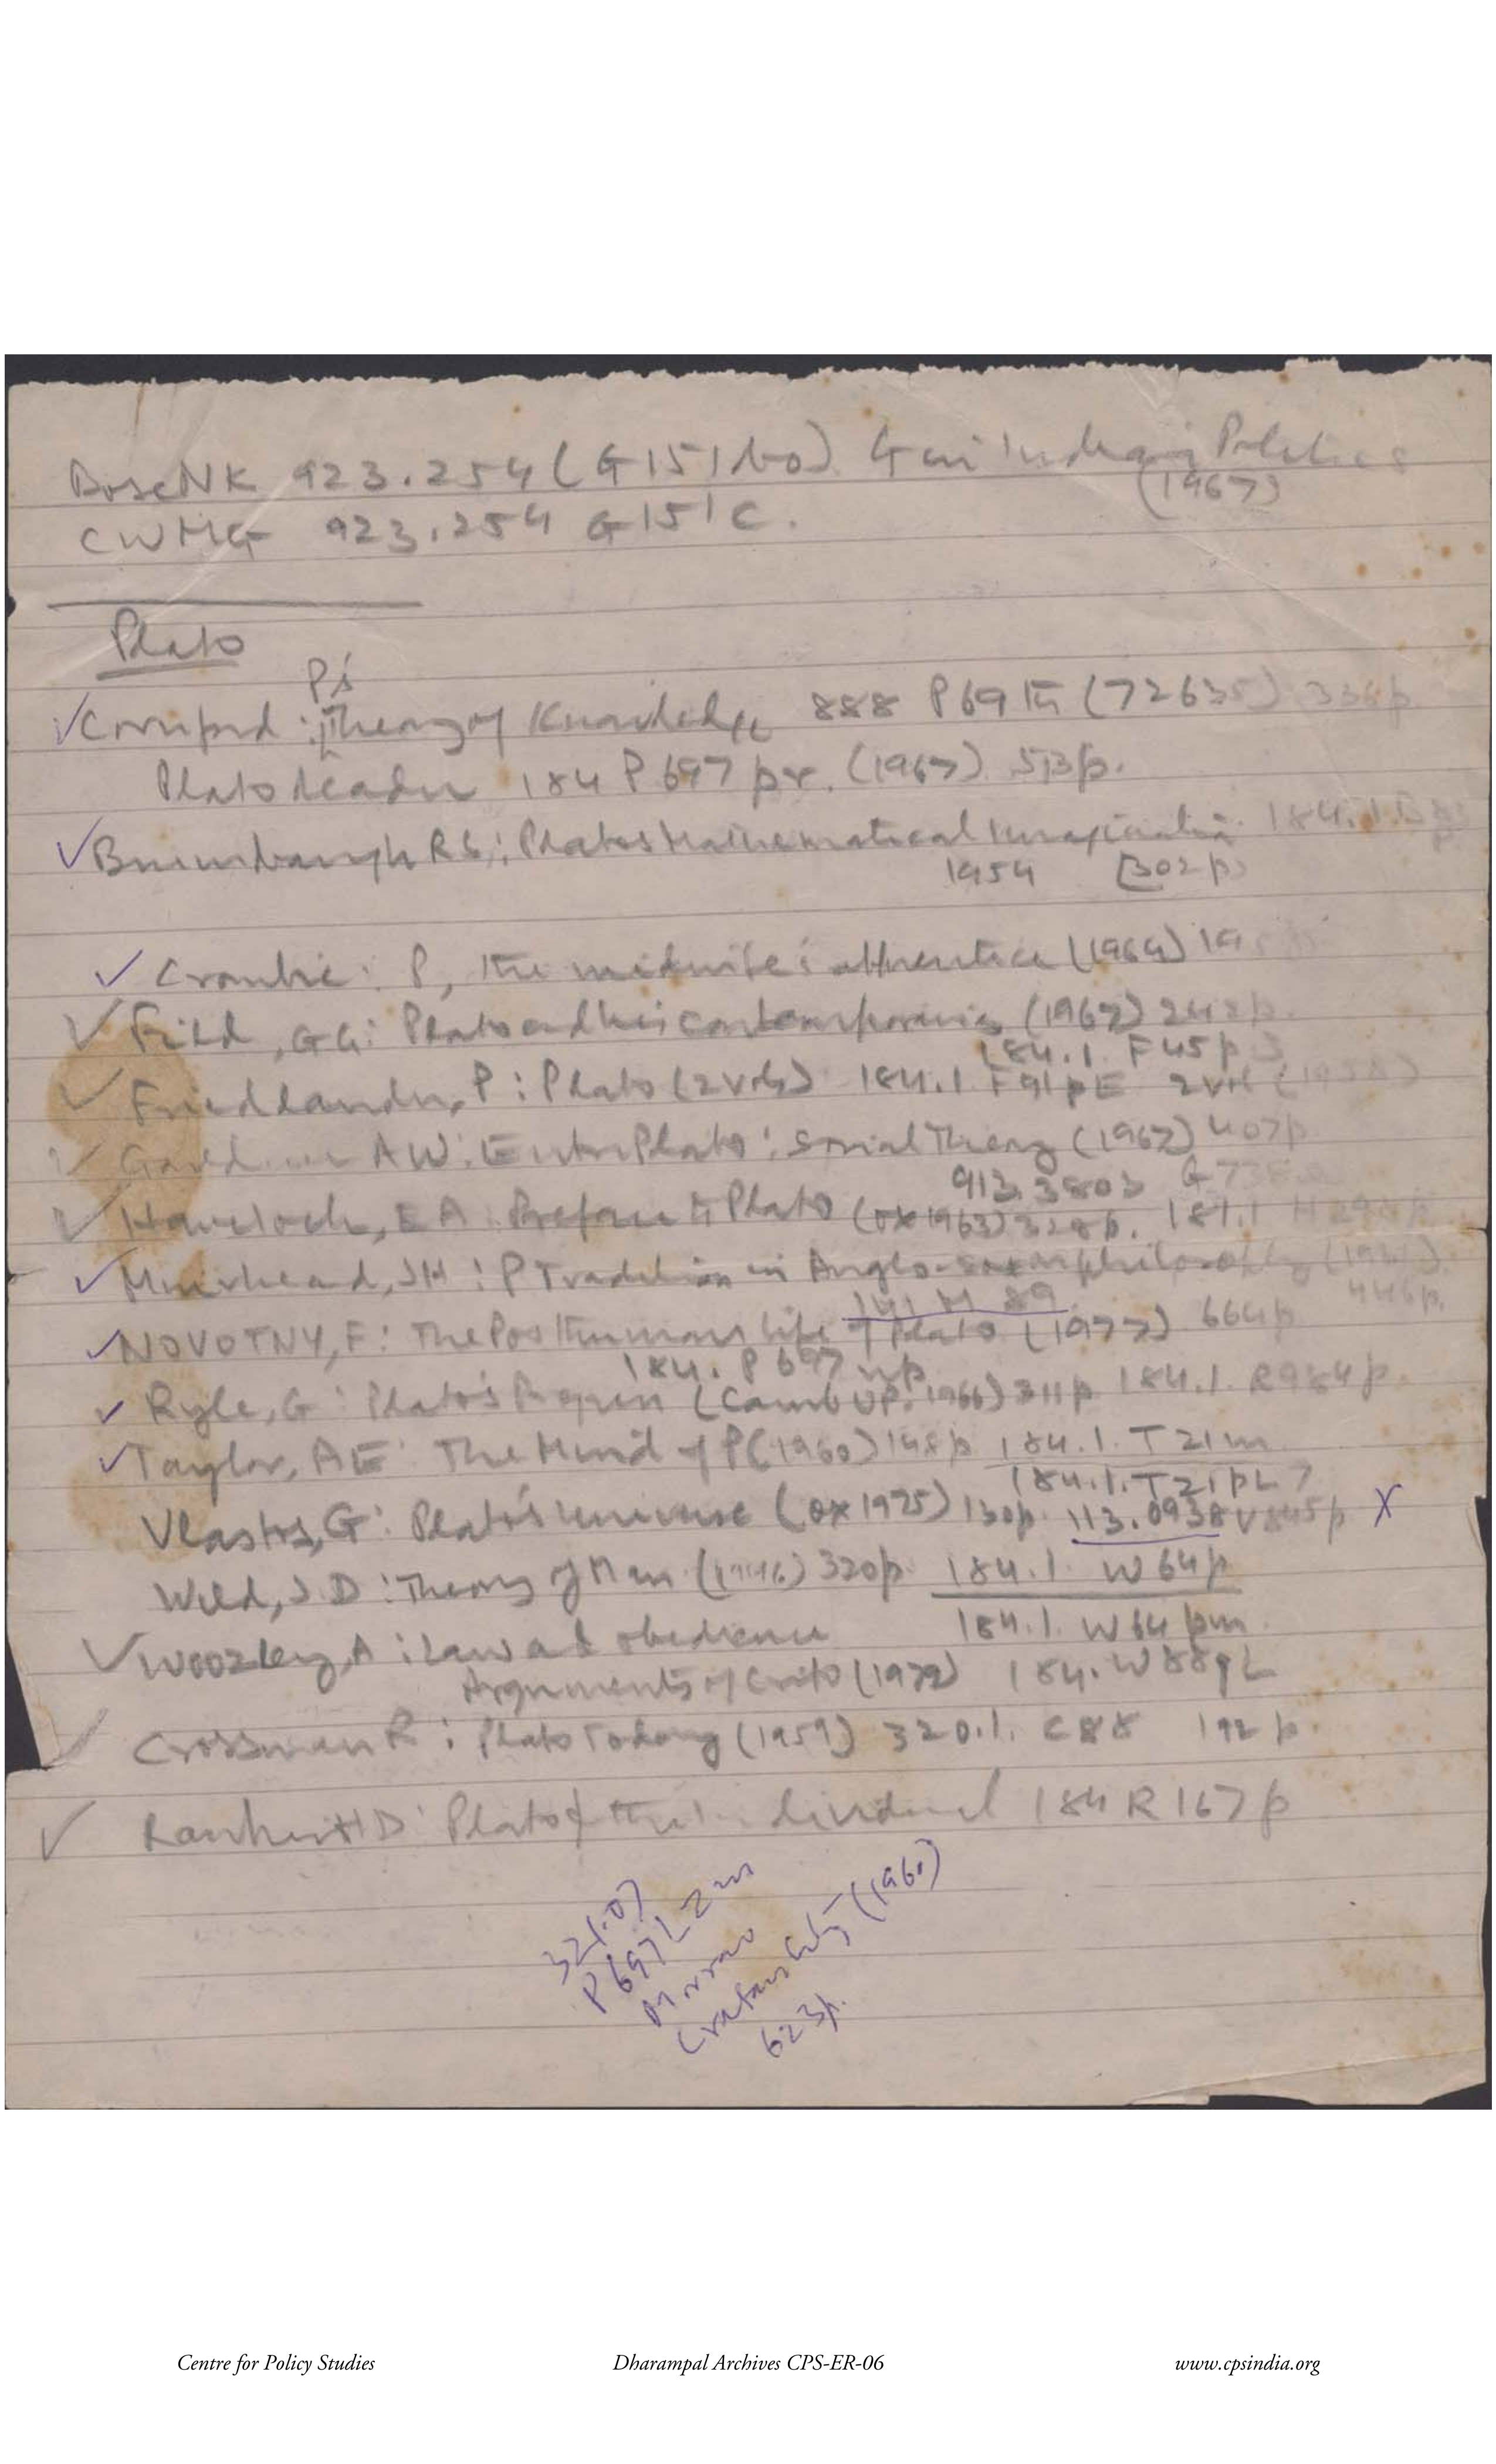 Bose NK 923.254 (G151bo) G in Indian Politics
(1967)
CWMG 923.254 G151C.
Plato
P's
✓ Cornford : Theory of Knowledge 888 P69 (72635) 336p
Plato Reader 184 P697 pr. (1967) 513p.
✓ Brumbaugh RS : Platos Mathematical Imagination 184.1
1954 [302p]
✓ Crombie : P, the midwife's apprentice (1964)
✓ Field, GG : Plato and his contemporaries (1967) 242p.
184.1 F45p
✓ Friedlander, P : Plato (2 vols) 184.1 F91pE 2 vol (1958)
✓ Gouldner AW : Enter Plato : Social Theory (1967) 407p
913.3803 G73
✓ Havelock, EA : Preface to Plato (Ox 1963) 328p. 184.1
✓ Muirhead, JH : P Tradition in Anglo-Saxon philosophy (1931)
141 M 89 446p.
✓ NOVOTNY, F : The Posthumous Life of Plato (1977) 664p
184. P697 np
✓ Ryle, G : Plato's Progress (Camb UP. 1966) 311p 184.1. R984p.
✓ Taylor, AE : The Mind of P (1960) 148p 184.1. T21m
184.1. T21pL7
Vlastos, G : Plato's Universe (Ox 1975) 130p. 113.0938 V845p X
Wild, J.D : Theory of Man (1946) 320p. 184.1. W64p
184.1. W64pm
✓ Woozley, A : Law and obedience
Arguments of Crito (1979) 184. W88pL
✓ Crossman R : Plato Today (1959) 320.1. C88 192p.
✓ Rankin HD : Plato & the individual 184 R167p
321.07
P697LZm
Morrow
Cretan City (1960)
623p.
Centre for Policy Studies Dharampal Archives CPS-ER-06 www.cpsindia.org